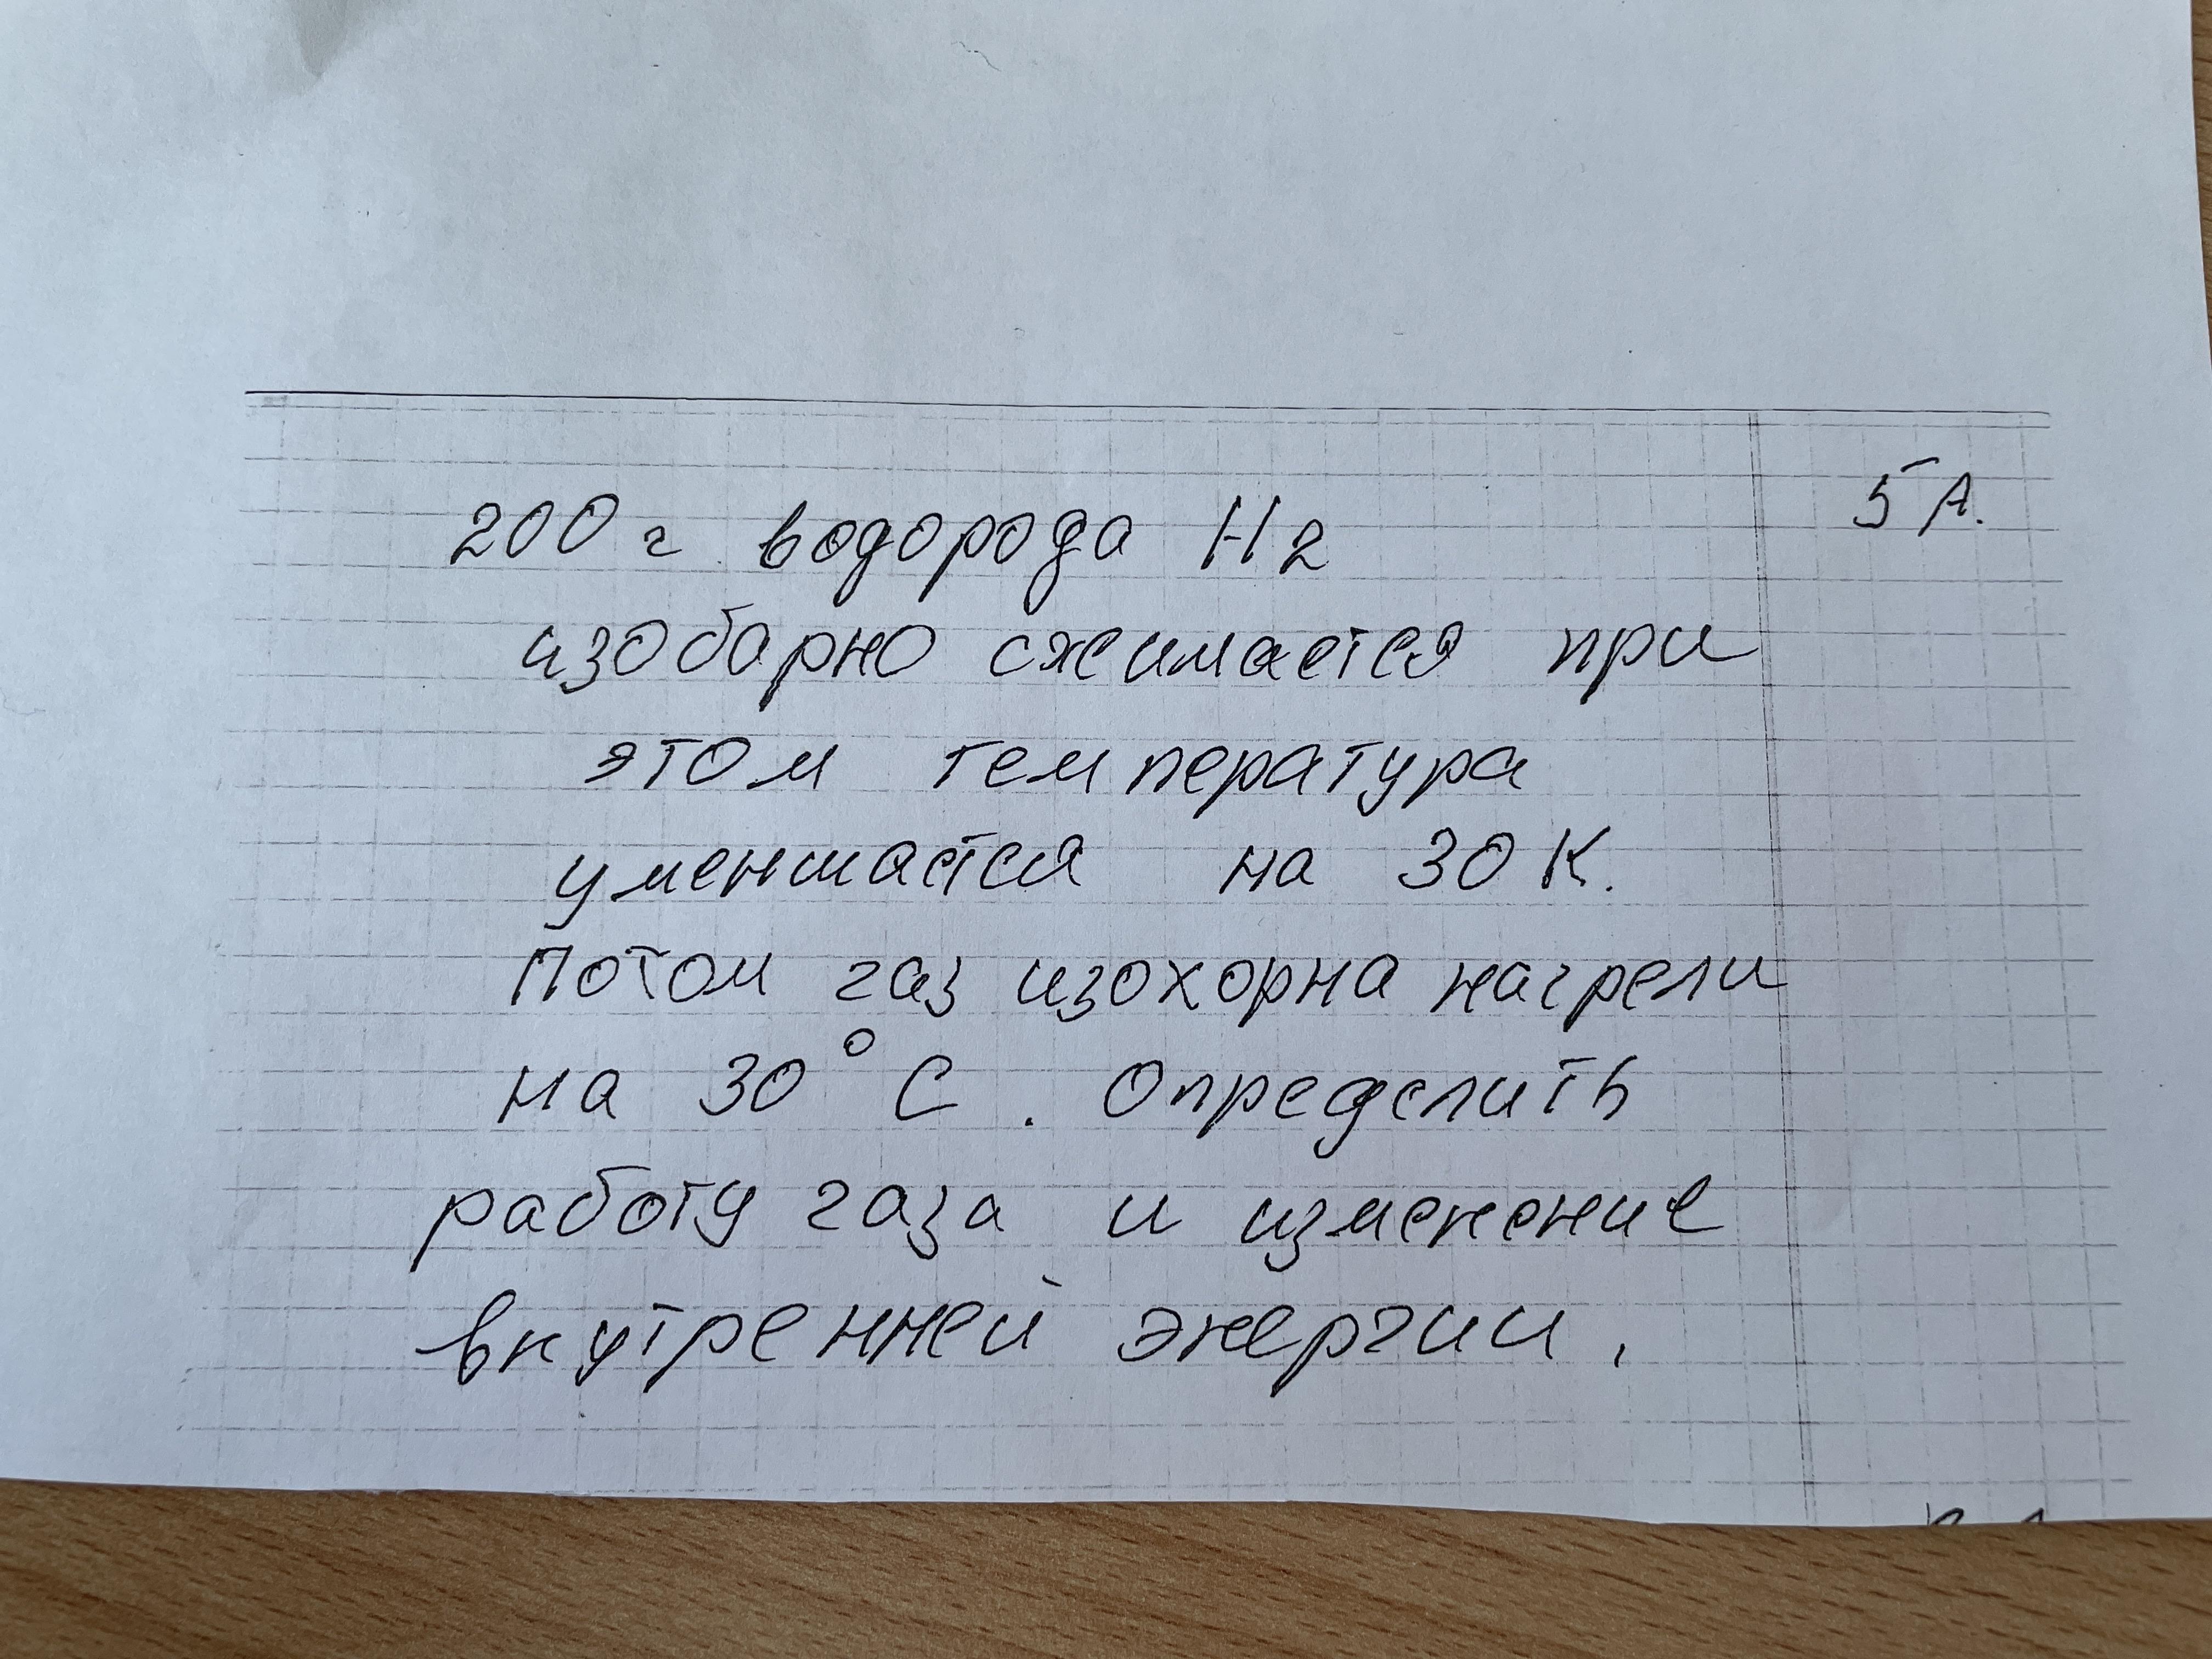 200 г водорода H2
5 А.
изобарно сжимается при
этом температура
уменшается на 30 К.
Потом газ изохорна нагрели
на 30° С. Определить
работу газа и изменение
внутренней энергии.